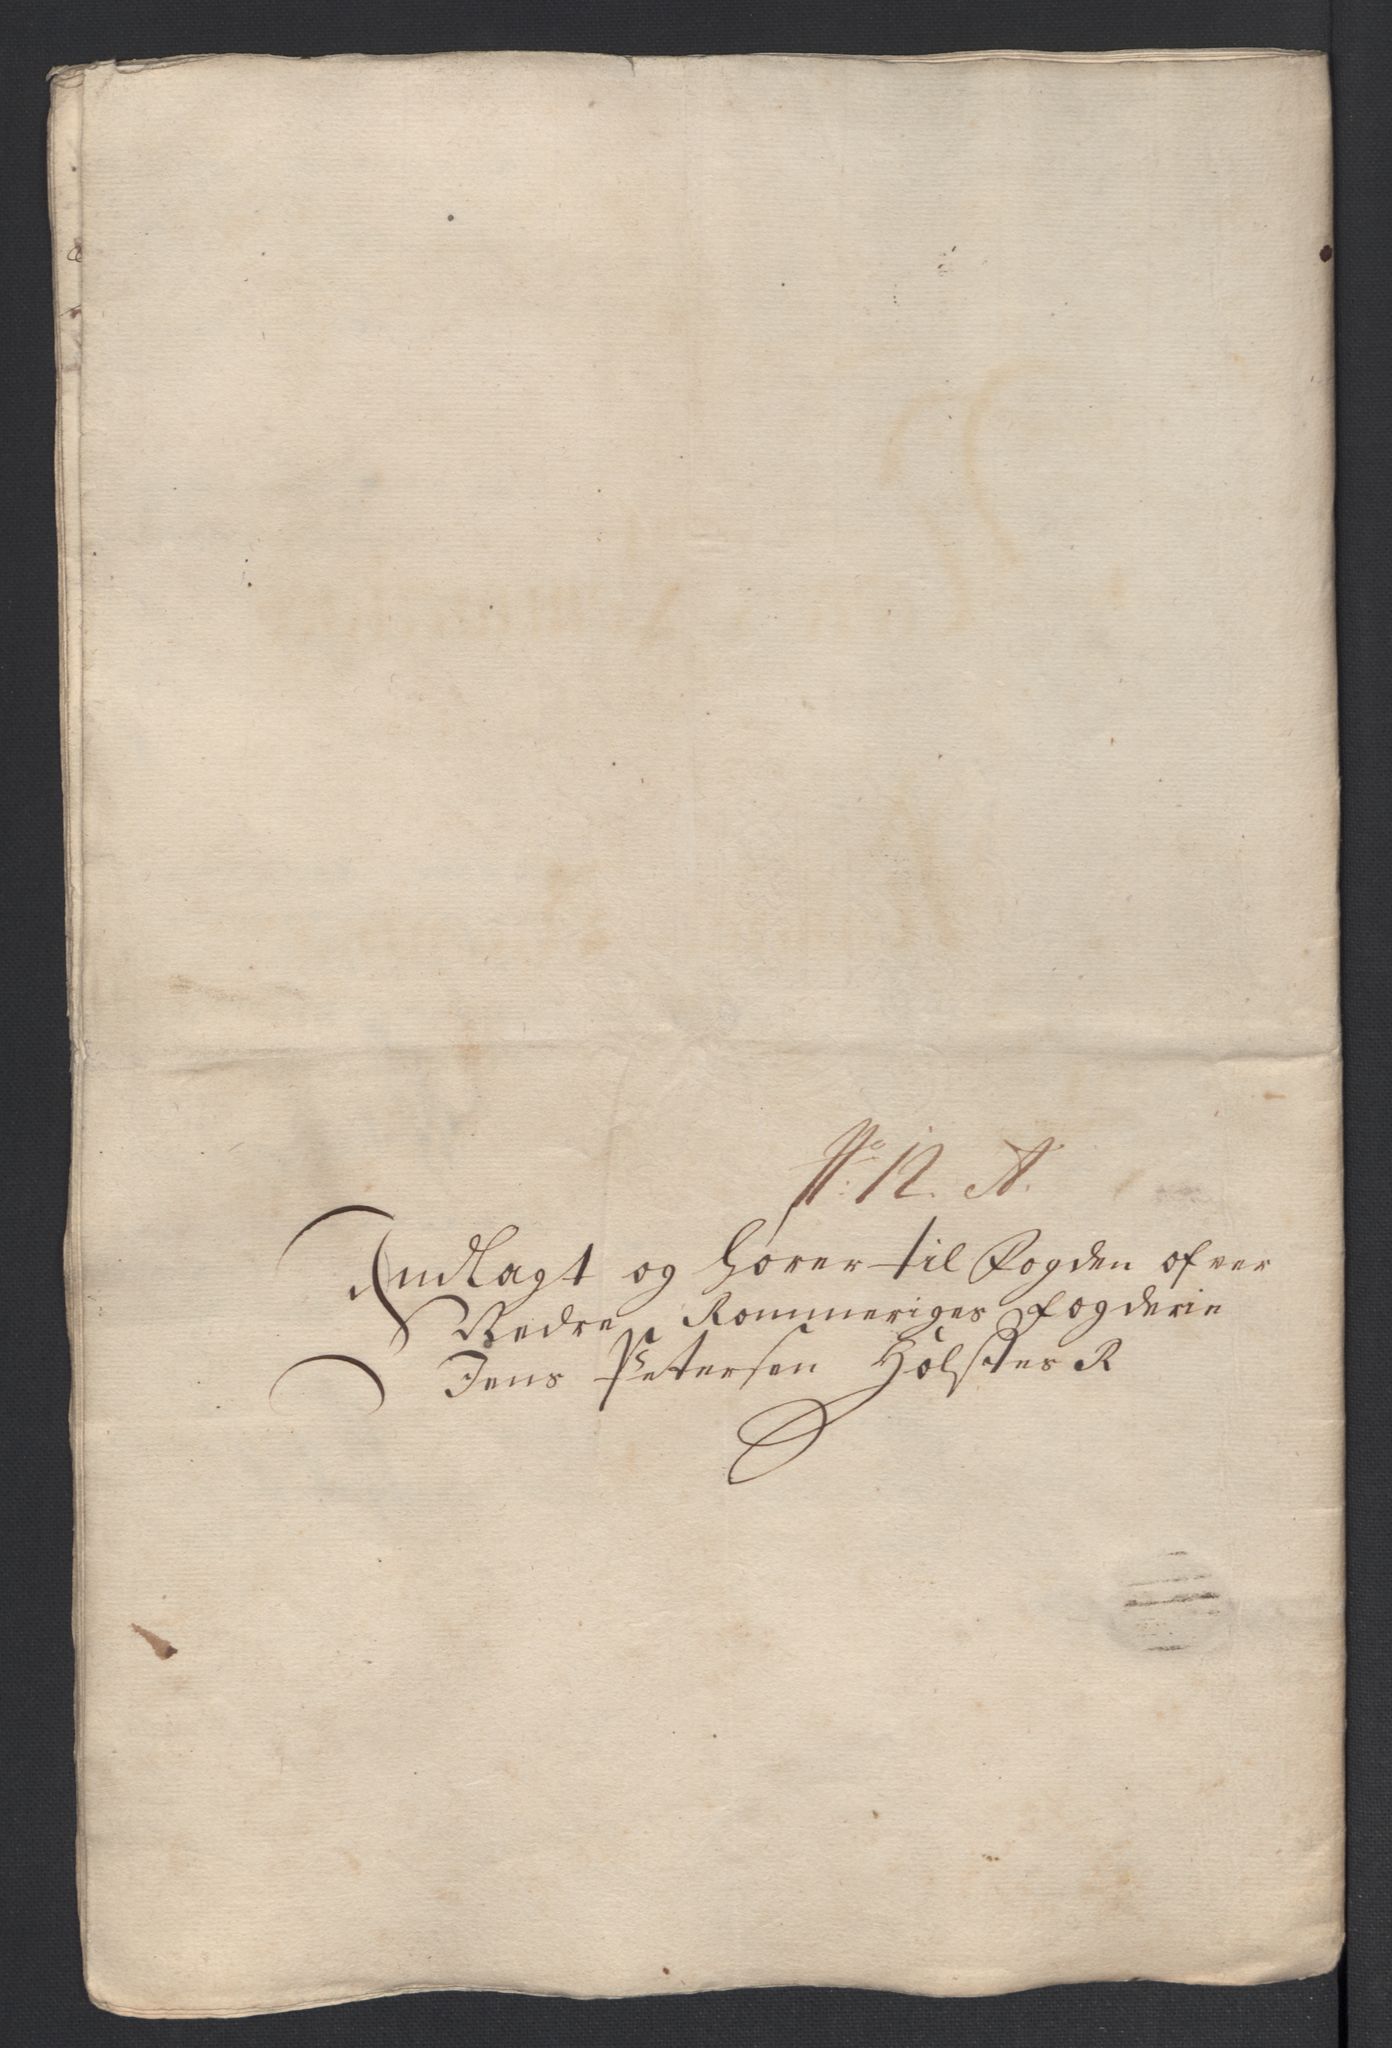 No: 12. A.
Indlagt og hører til Fogden ofver
Nedre Rommeriges fogderie
Jens Petersen Holstes R